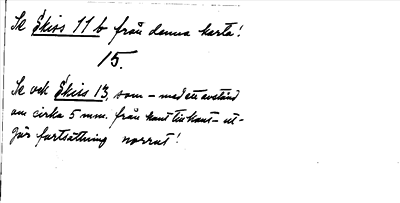 Se Skiss 11 b från denna karta!
15.
Se och Skiss 13, som – med ett avstånd
om cirka 5 mm. från kant till kant – ut-
gör fortsättning norrut!